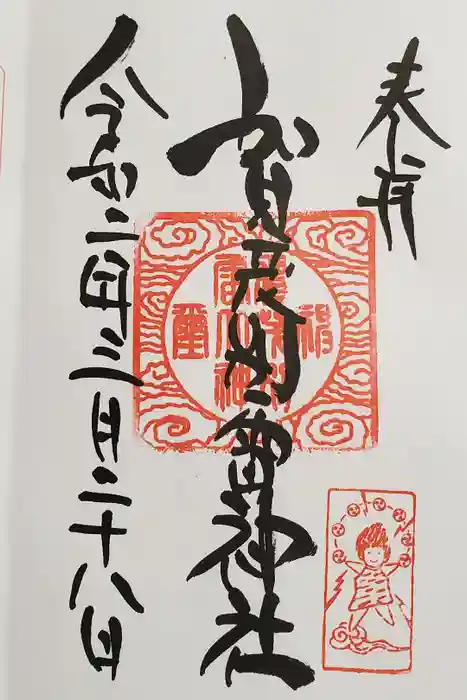 奉拝
賀茂別雷神社
令和二年三月二十八日